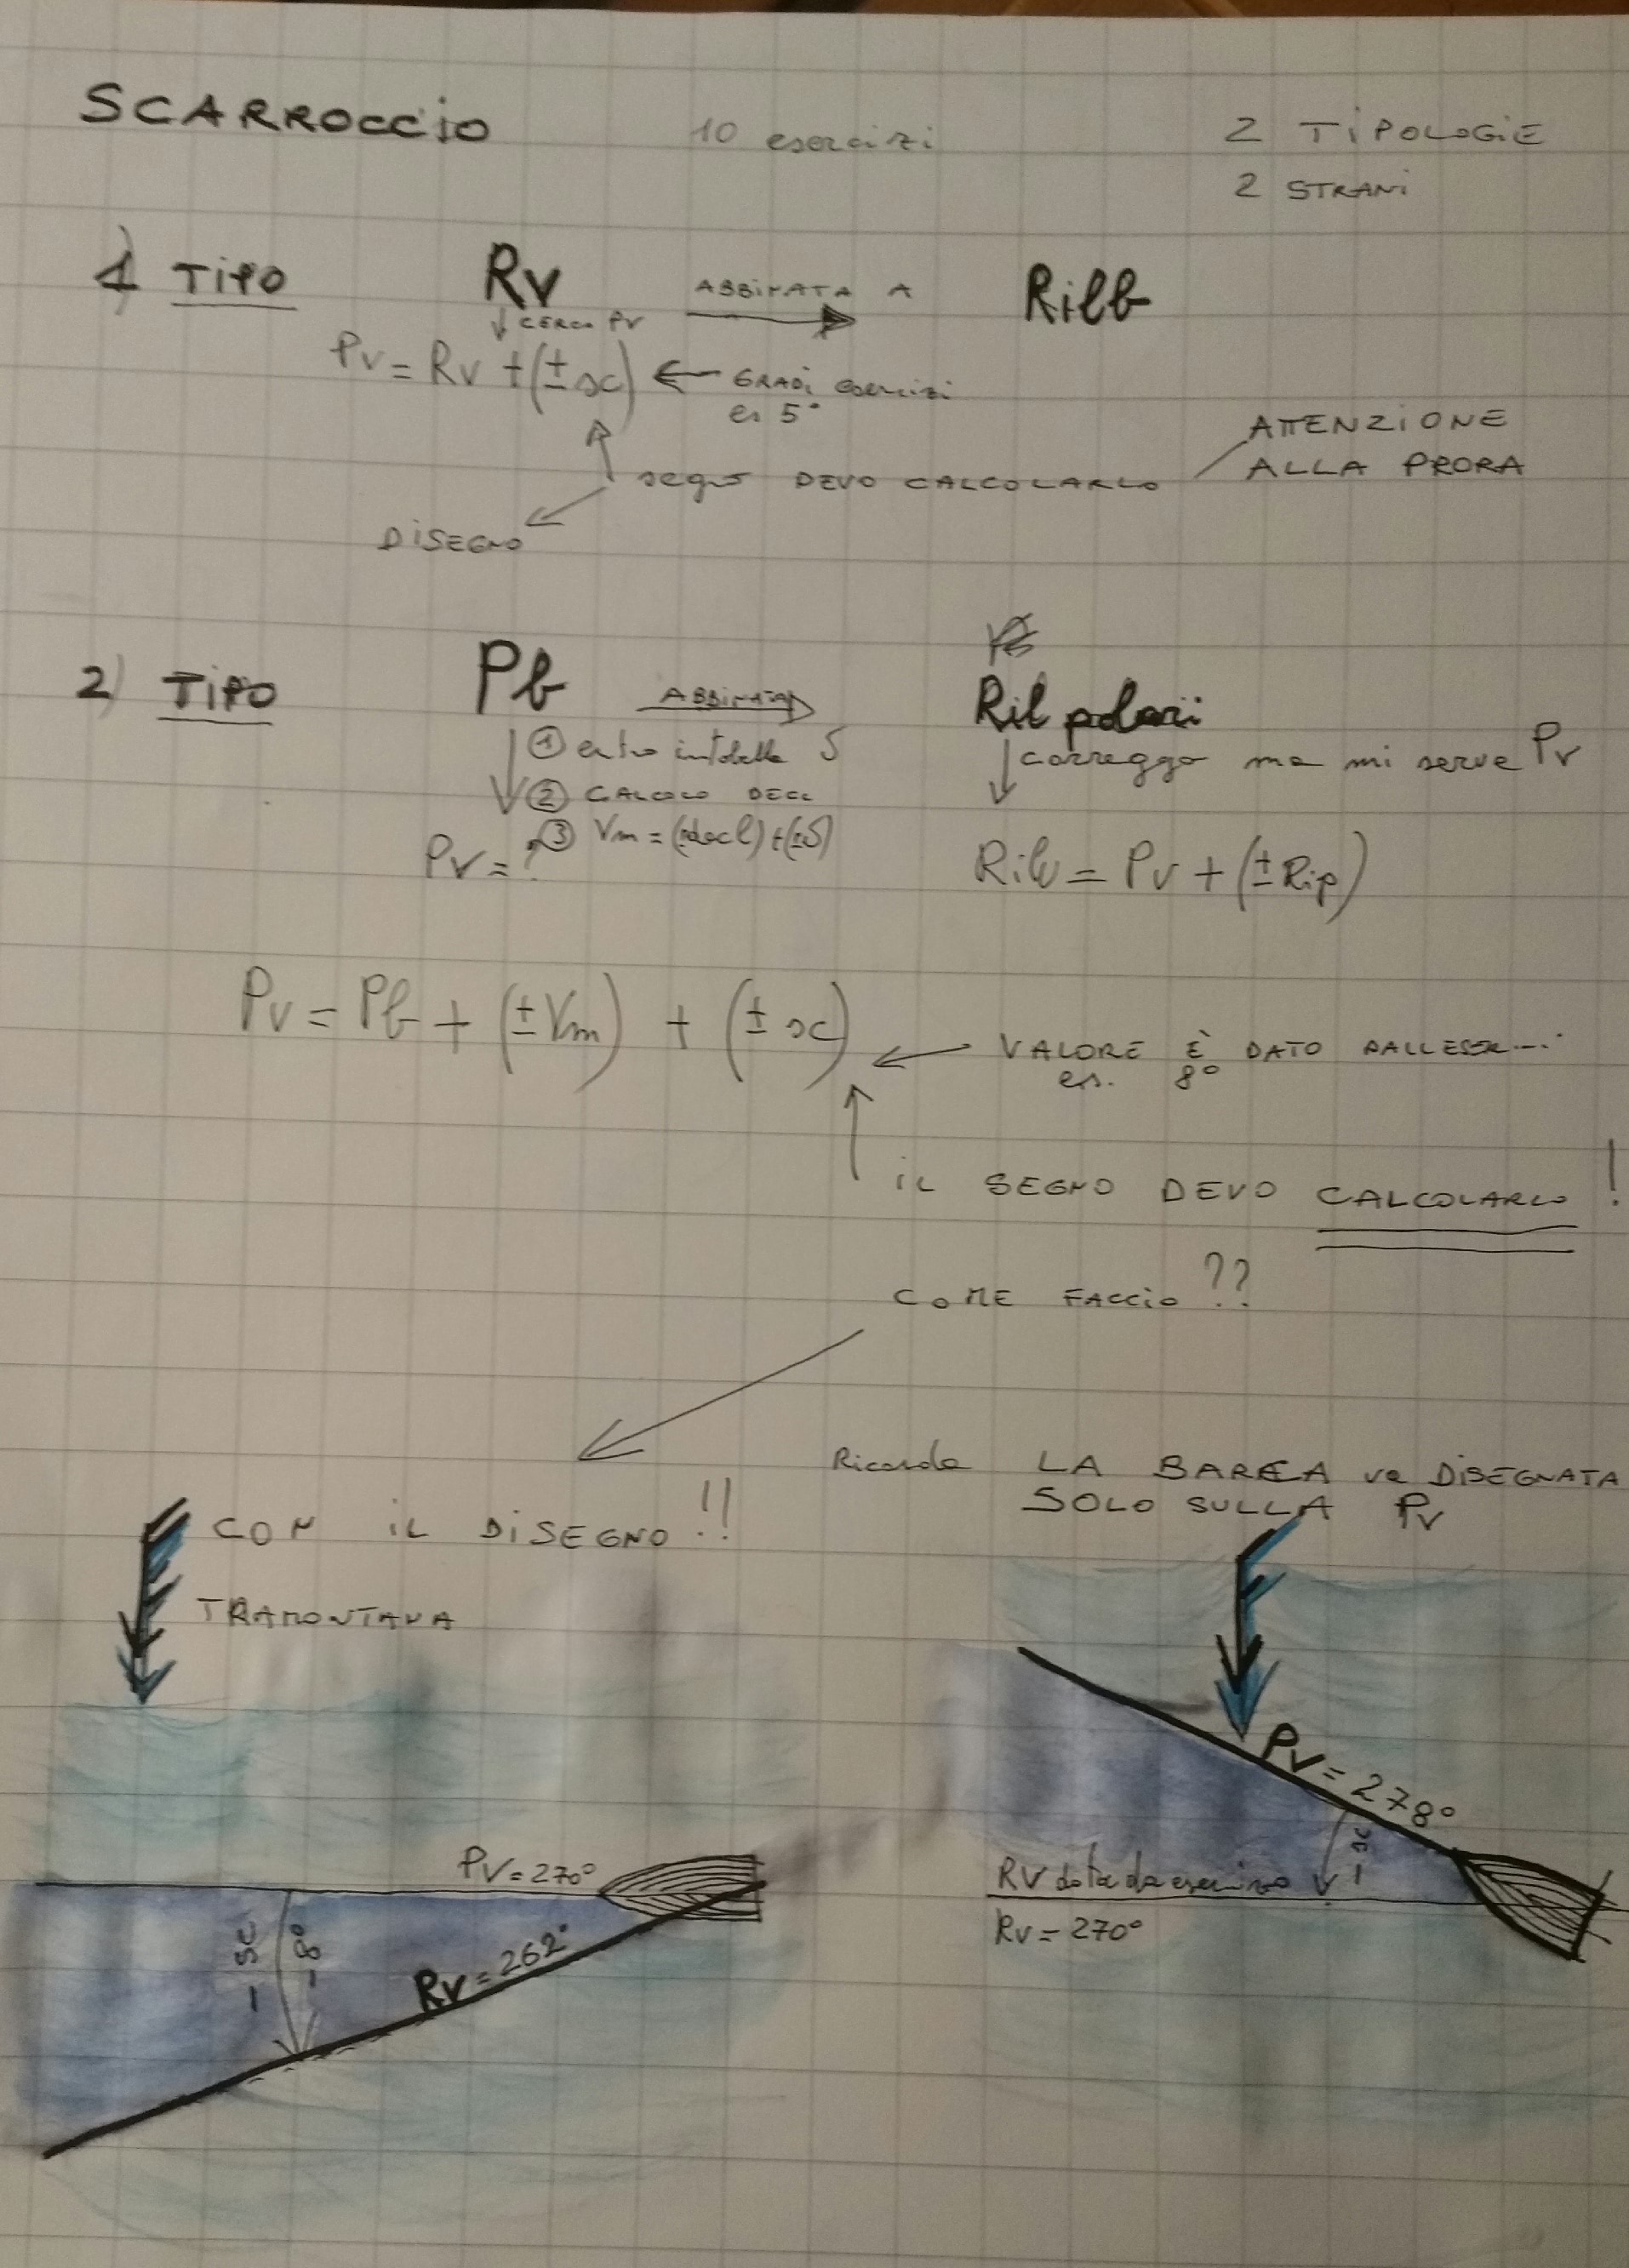 SCARROCCIO 10 esercizi 2 TIPOLOGIE
2 STRANI
1) TIPO Rv ABBINATA A Rilb
CERCO PV
Pv = Rv + (± sc) GRADI esercizi
es 5°
ATTENZIONE
ALLA PRORA
segno DEVO CALCOLARLO
DISEGNO
2) TIPO Pb ABBINATA Ril polari
① entro in tabella δ correggo ma mi serve Pv
② CALCOLO DECL
③ Vm = (±decl) + (±δ)
Pv = ? Rilv = Pv + (± Rip)
Pv = Pb + (± Vm) + (± sc)
VALORE È DATO DALL'ESER....
es. 8°
IL SEGNO DEVO CALCOLARLO !
COME FACCIO ??
Ricorda LA BARCA va DISEGNATA
SOLO SULLA Pv
CON IL DISEGNO !!
TRAMONTANA
PV = 270°
- sc
- 8°
RV = 262°
PV = 278°
- sc
RV data da esercizio
RV = 270°